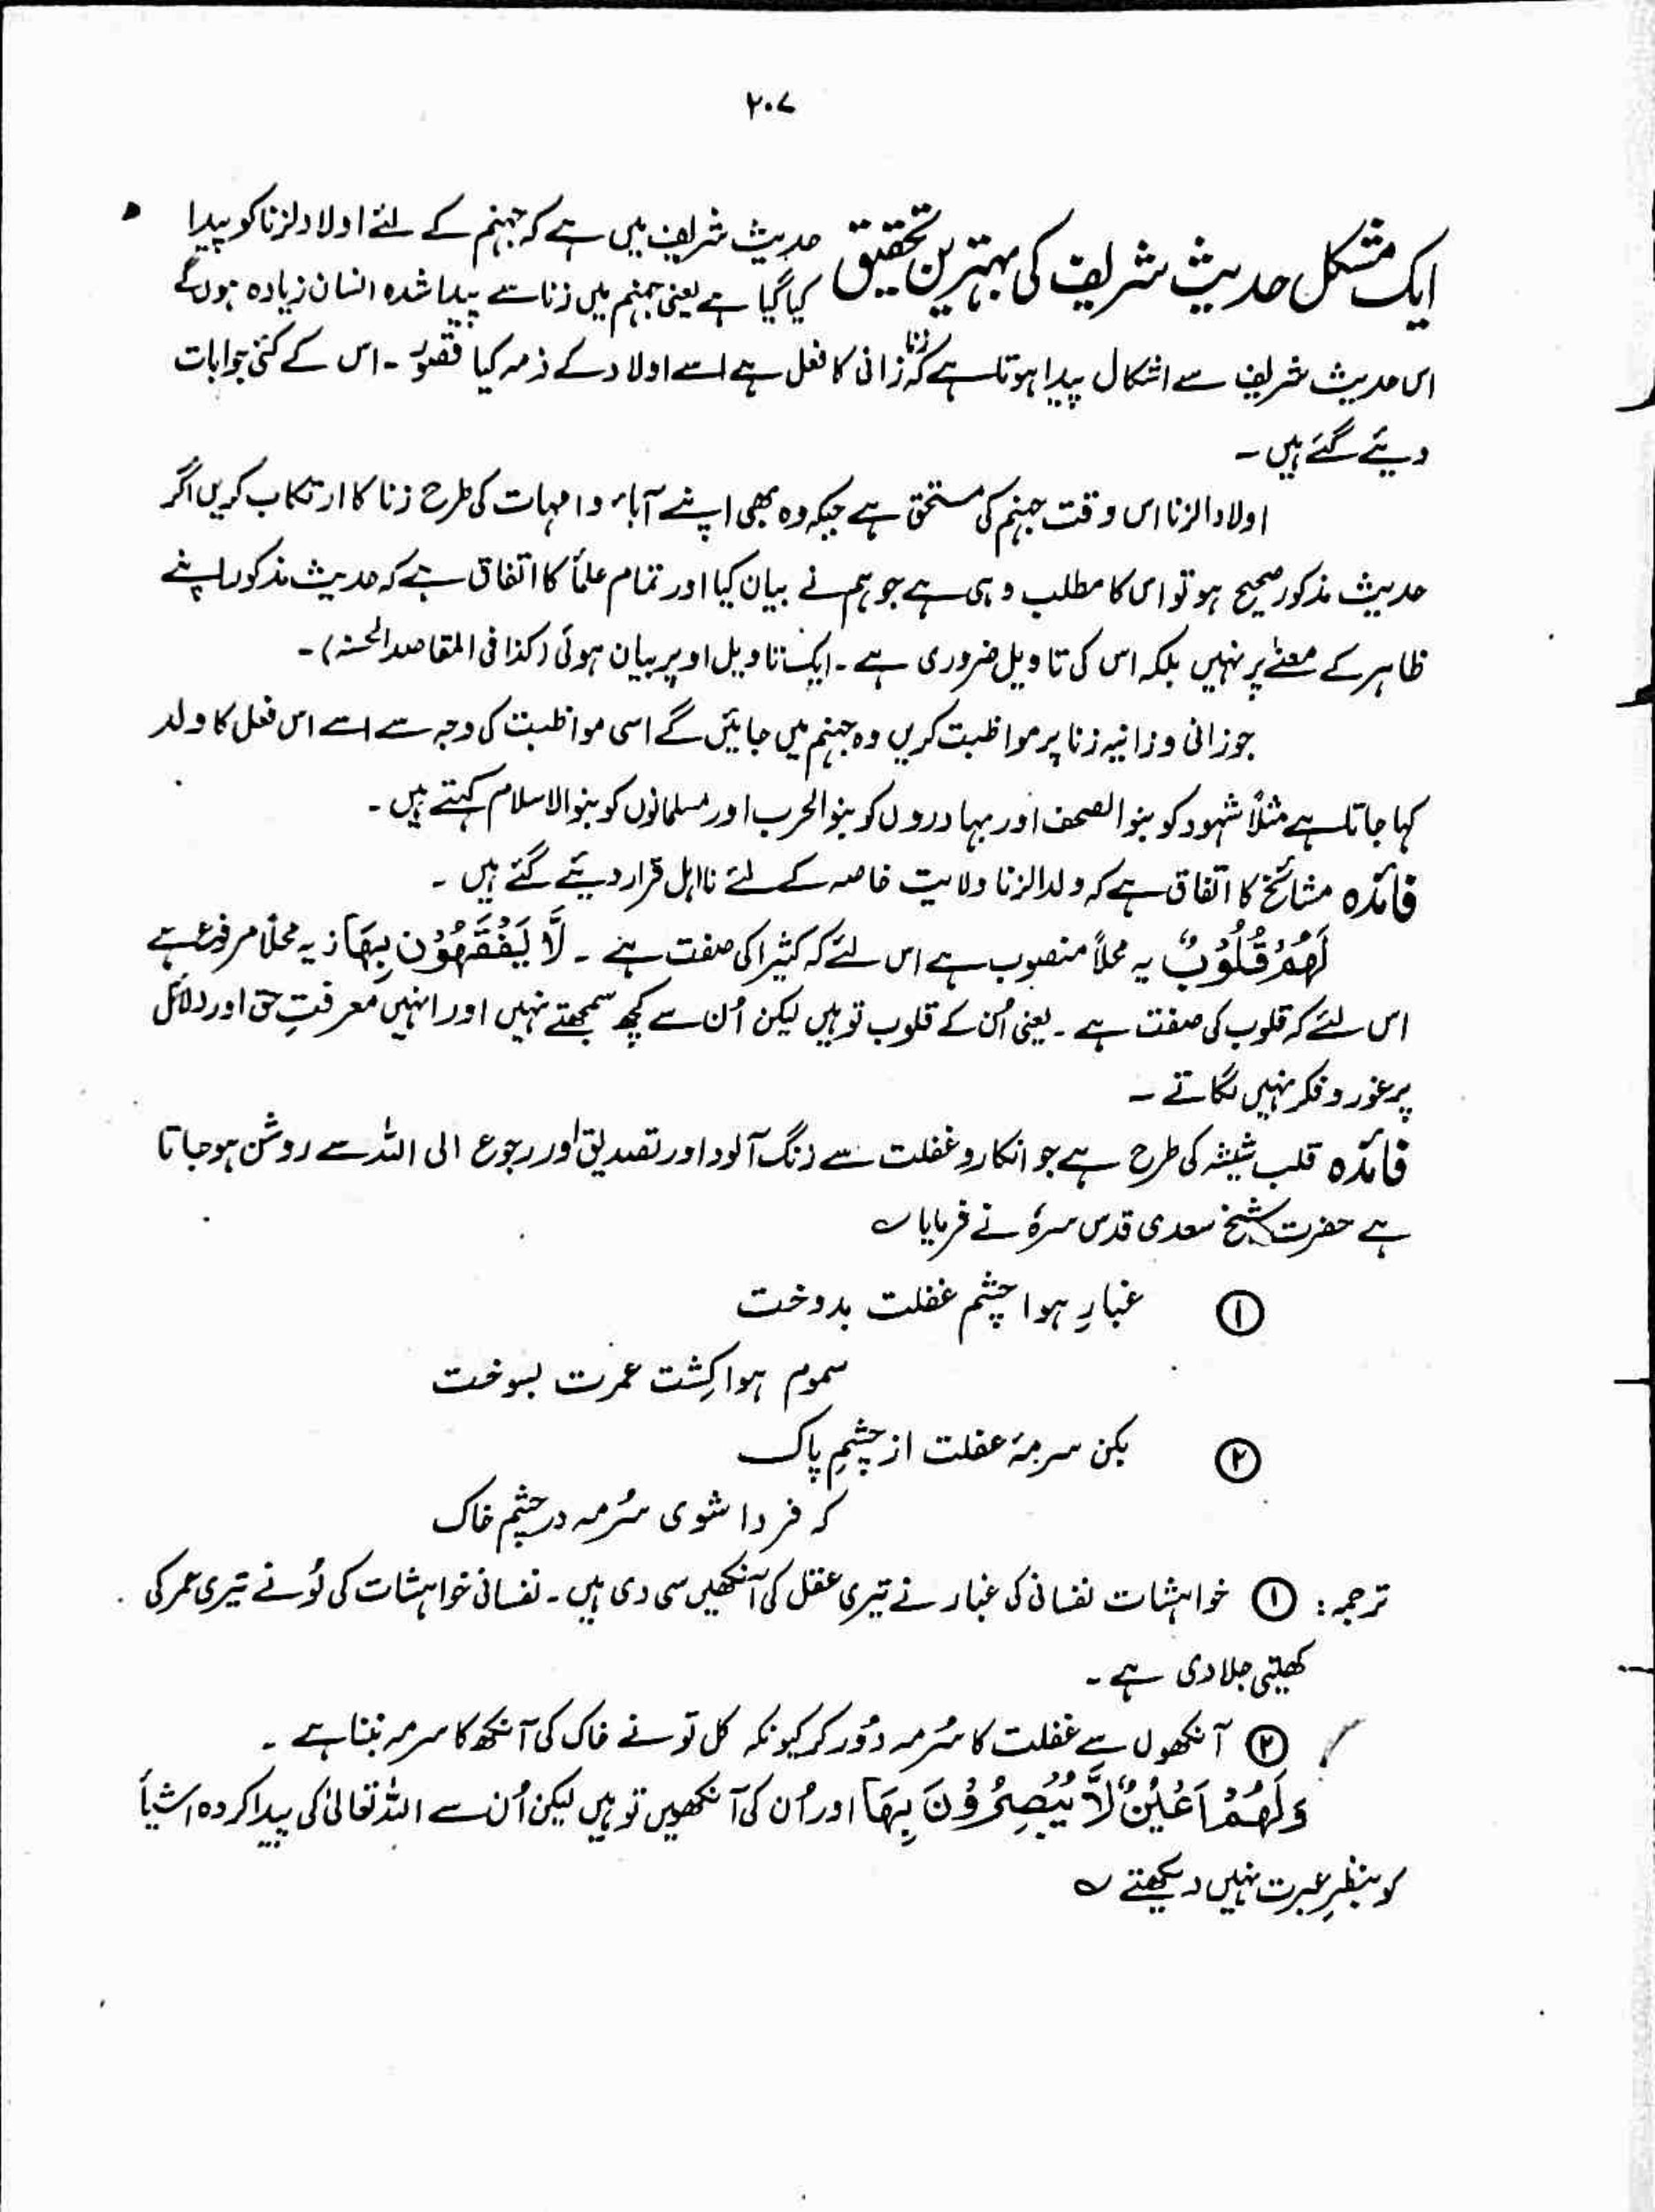 ۲۰۷
ایک مشکل حدیث شریف کی بہترین تحقیق حدیث شریف میں ہے کہ جہنم کے لئے اولادلزنا کو پیدا
کیا گیا ہے یعنی جہنم میں زنا سے پیدا شدہ انسان زیادہ ہوں گے
اس حدیث شریف سے اشکال پیدا ہوتا ہے کہ زنا زانی کا فعل ہے اسے اولاد کے ذمہ کیا قصور ۔ اس کے کئی جوابات
دیئے گئے ہیں ۔
اولاد الزنا اس وقت جہنم کی مستحق ہے جبکہ وہ بھی اپنے آباء و امہات کی طرح زنا کا ارتکاب کریں اگر
حدیث مذکور صحیح ہو تو اس کا مطلب وہی ہے جو ہم نے بیان کیا اور تمام علمأ کا اتفاق ہے کہ حدیث مذکور اپنے
ظاہر کے معنے پر نہیں بلکہ اس کی تاویل ضروری ہے ۔ ایک تاویل اوپر بیان ہوئی (کذا فی المقاصد الحسنہ) ۔
جو زانی و زانیہ زنا پر مواظبت کریں وہ جہنم میں جائیں گے اسی مواظبت کی وجہ سے اسے اس فعل کا ولد
کہا جاتا ہے مثلاً شہود کو بنو الصحف اور بہادروں کو بنوالحرب اور مسلمانوں کو بنوالاسلام کہتے ہیں ۔
فائدہ مشائخ کا اتفاق ہے کہ ولد الزنا ولایت خاصہ کے لئے نااہل قرار دیئے گئے ہیں ۔
لَهُمْ قُلُوْبٌ یہ محلاً منصوب ہے اس لئے کہ کثیرا کی صفت ہے ۔ لَّا يَفْقَهُوْنَ بِهَا ز یہ محلاً مرفوع ہے
اس لئے کہ قلوب کی صفت ہے ۔ یعنی اُن کے قلوب تو ہیں لیکن اُن سے کچھ سمجھتے نہیں اور انہیں معرفتِ حق اور دلائل
پر غور و فکر نہیں لگاتے ۔
فائدہ قلب شیشہ کی طرح ہے جو انکار و غفلت سے زنگ آلود اور تصدیق اور رجوع الی اللہ سے روشن ہو جاتا
ہے حضرت شیخ سعدی قدس سرہٗ نے فرمایا ؎
① غبارِ ہوا چشم غفلت بدوخت
سموم ہوا کِشت عمرت بسوخت
② بکن سرمۂ غفلت از چشمِ پاک
کہ فردا شوی سُرمہ در چشم خاک
ترجمہ : ① خواہشات نفسانی کی غبار نے تیری عقل کی آنکھیں سی دی ہیں ۔ نفسانی خواہشات کی لُو نے تیری عمر کی
کھیتی جلا دی ہے ۔
② آنکھوں سے غفلت کا سُرمہ دُور کر کیونکہ کل تو نے خاک کی آنکھ کا سرمہ بننا ہے ۔
وَلَهُمْ اَعْيُنٌ لَّا يُبْصِرُوْنَ بِهَا اور اُن کی آنکھیں تو ہیں لیکن اُن سے اللہ تعالیٰ کی پیدا کردہ اشیأ
کو بنظرِ عبرت نہیں دیکھتے ؎